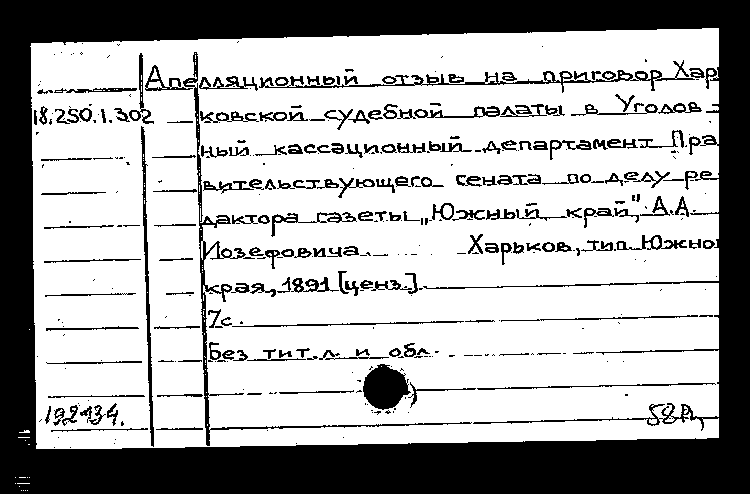 Апелляционный отзыв на приговор Харь
18.250.1.302 ковской судебной палаты в Уголов-
ный кассационный департамент Пра
вительствующего сената по делу ре-
дактора газеты „Южный край", А.А.
Иозефовича. Харьков, тип. Южно
края, 1891 [ценз.].
7с.
Без тит. л. и обл.
192434.